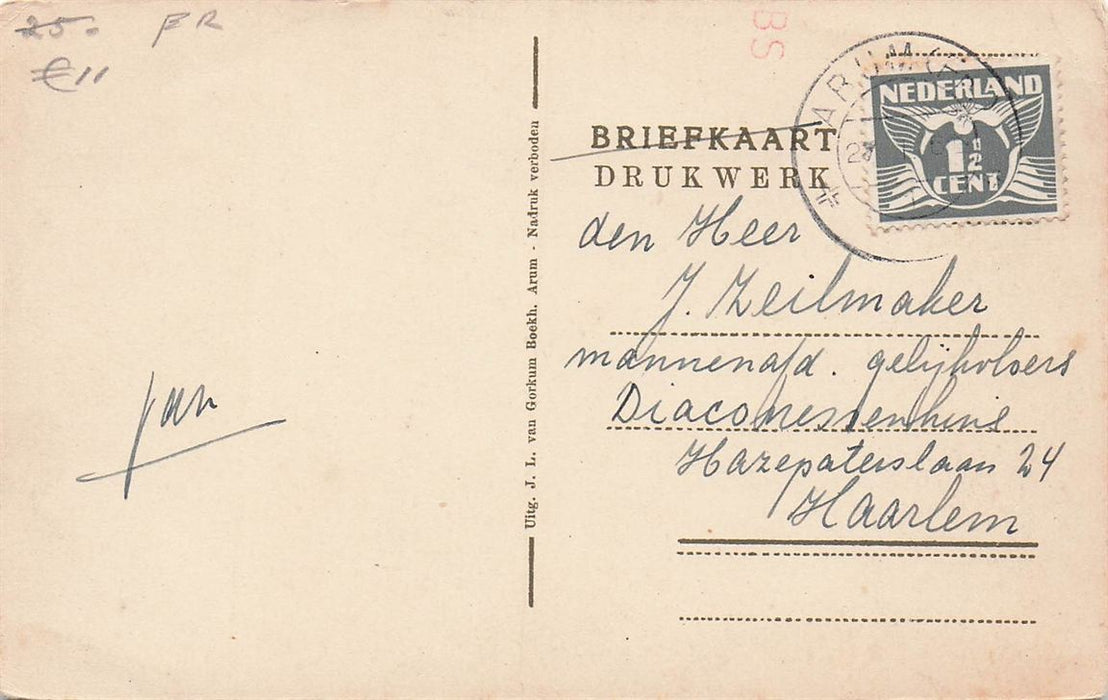 25. FR
€11
BS
ARUM (FR)
NEDERLAND
1½
CENT
BRIEFKAART
DRUKWERK
den Heer
J. Zeilmaker
mannenafd. gelijkvloers
Diaconessenhuis
Hazepaterslaan 24
Haarlem
Jan
Uitg. J. L. van Gorkum Boekh. Arum - Nadruk verboden